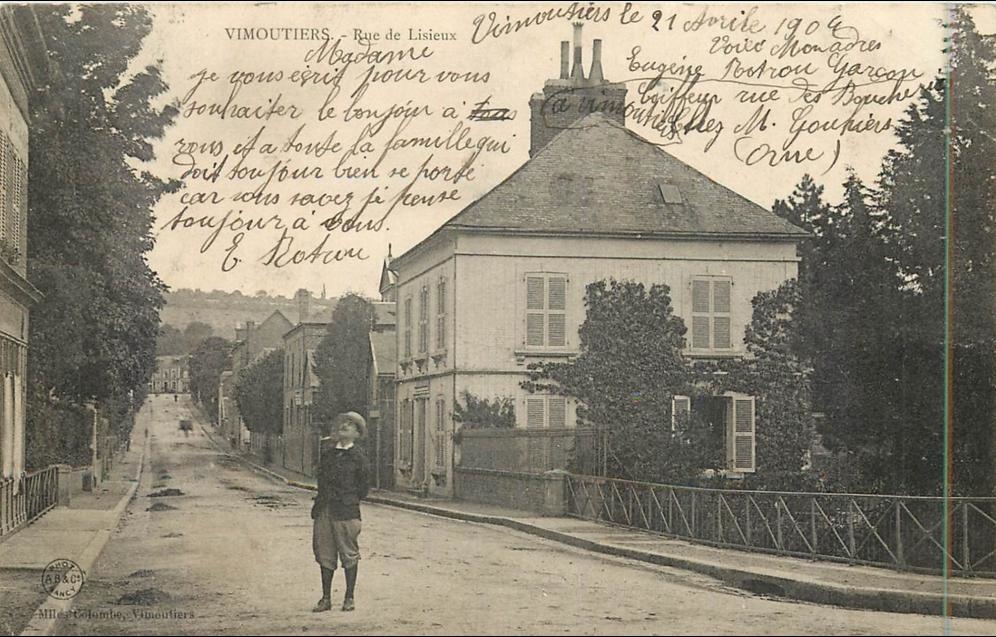 VIMOUTIERS. - Rue de Lisieux
Vimoutiers le 21 Avrile 1904
Madame
je vous écrit pour vous
souhaiter le bonjour à
vous et a toute la famille qui
doit toujour bien se porté
car vous savez je pense
toujour à vous.
E. Rotrou
Voici Mon adres
Eugène Rotrou Garçon
Coiffeur rue des Bouche
chez M. Gouhiers
a Vimoutiers
(Orne)
PHOT
A.B & Cº
NANCY
Mlle Colombe, Vimoutiers